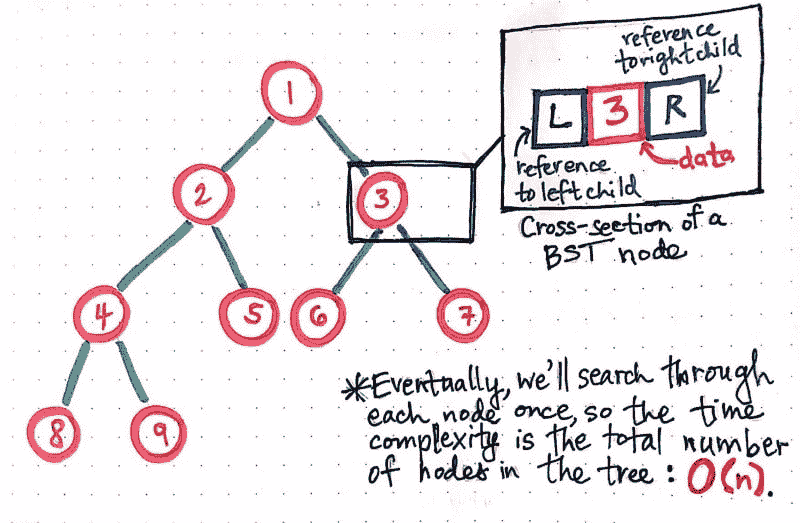 1
2
3
4
5
6
7
8
9
reference
to right child
L 3 R
reference
to left child
data
Cross-section of a
BST node
*Eventually, we'll search through
each node once, so the time
complexity is the total number
of nodes in the tree: O(n).